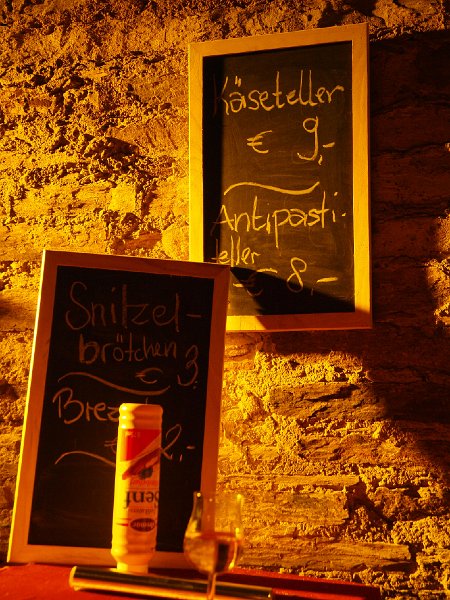 Käseteller
€ 9,-
Antipasti-
eller
€ 8,-
Snitzel-
brötchen
€ 3
Breze
2,-